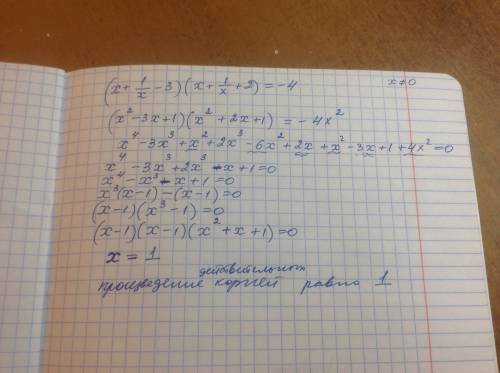 (x + 1/x − 3)(x + 1/x + 2) = −4    x ≠ 0
(x² − 3x + 1)(x² + 2x + 1) = −4x²
x⁴ − 3x³ + x² + 2x³ − 6x² + 2x + x² − 3x + 1 + 4x² = 0
x⁴ − 3x³ + 2x³ − x + 1 = 0
x⁴ − x³ − x + 1 = 0
x³(x − 1) − (x − 1) = 0
(x − 1)(x³ − 1) = 0
(x − 1)(x − 1)(x² + x + 1) = 0
x = 1
действительных
произведение корней равно 1